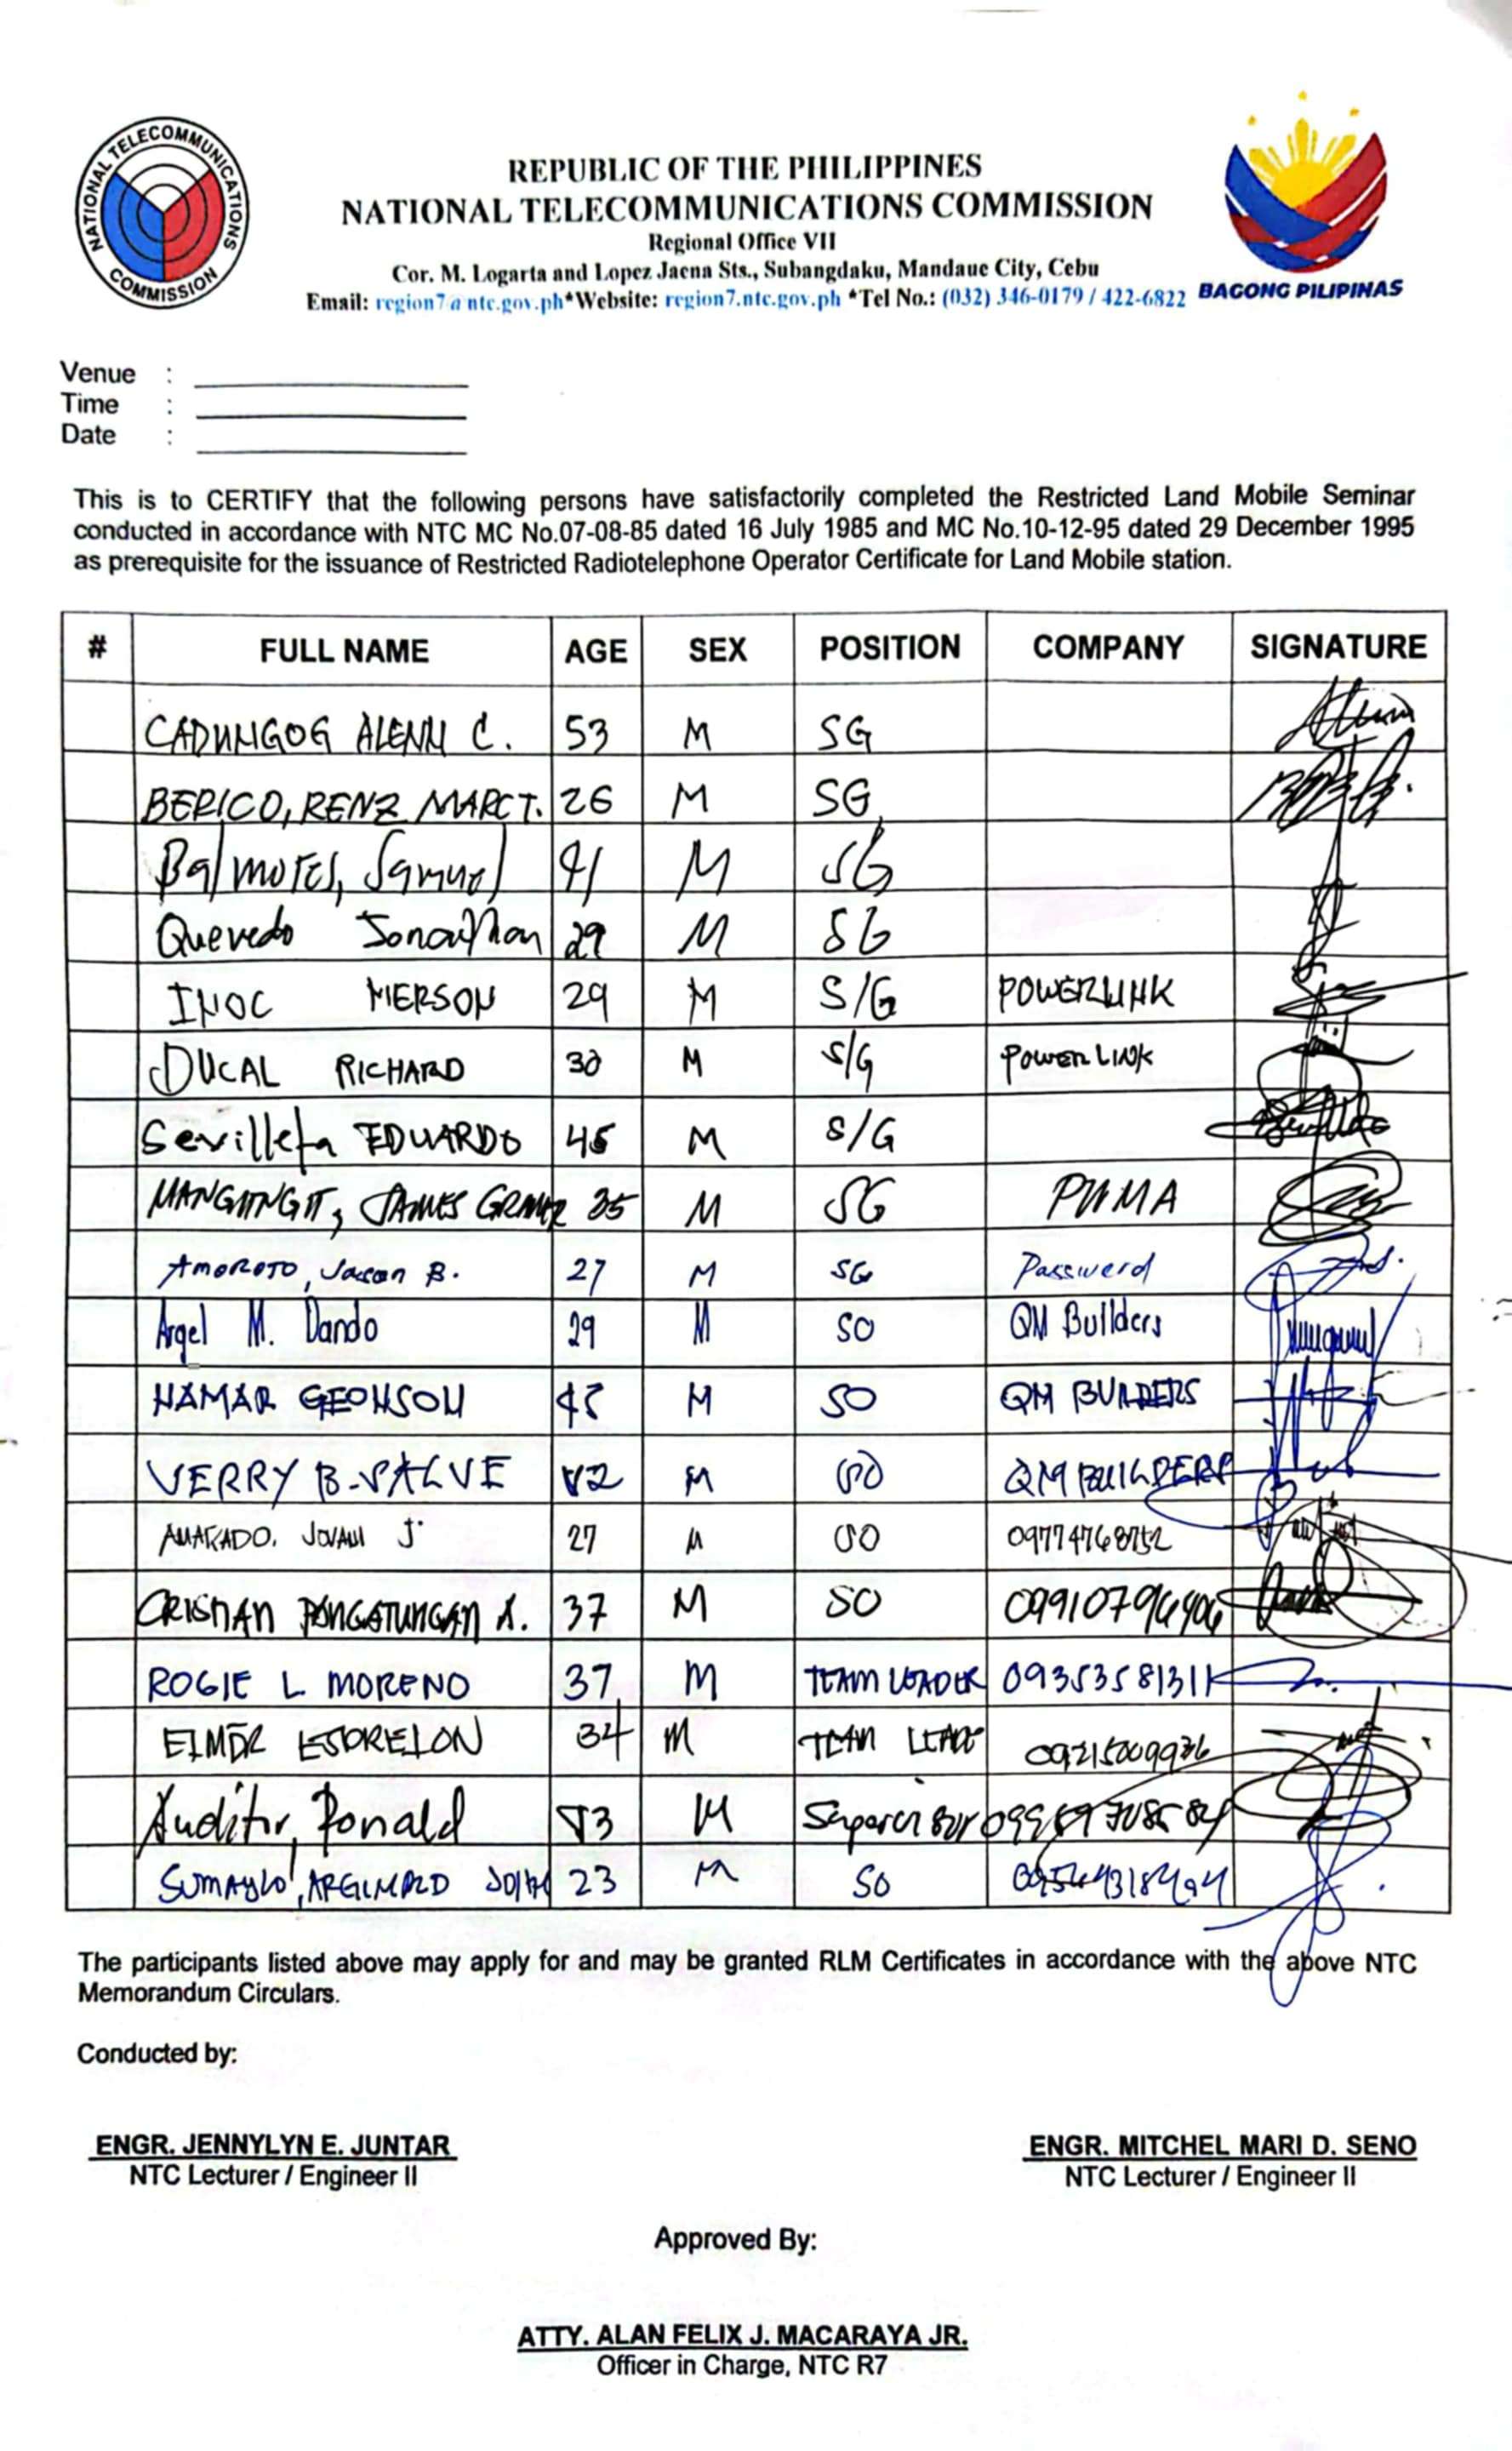 NATIONAL TELECOMMUNICATIONS COMMISSION
REPUBLIC OF THE PHILIPPINES
NATIONAL TELECOMMUNICATIONS COMMISSION
Regional Office VII
Cor. M. Logarta and Lopez Jaena Sts., Subangdaku, Mandaue City, Cebu
Email: region7@ntc.gov.ph*Website: region7.ntc.gov.ph *Tel No.: (032) 346-0179 / 422-6822
BAGONG PILIPINAS
Venue :
Time :
Date :
This is to CERTIFY that the following persons have satisfactorily completed the Restricted Land Mobile Seminar
conducted in accordance with NTC MC No.07-08-85 dated 16 July 1985 and MC No.10-12-95 dated 29 December 1995
as prerequisite for the issuance of Restricted Radiotelephone Operator Certificate for Land Mobile station.
# FULL NAME AGE SEX POSITION COMPANY SIGNATURE
CADUNGOG ALENN C. 53 M SG
BERICO, RENZ MARC T. 26 M SG
Balmores, Samuel 41 M SG
Quevedo Jonathan 29 M SG
INOC MERSON 29 M S/G POWERLINK
DUCAL RICHARD 30 M S/G POWERLINK
Sevilleta EDUARDO 45 M S/G
JAMES 35 M SG PNMA
AMOROTO, Jason B. 27 M SG Password
Argel M. Dando 29 M SO QM Builders
HAMAR GEOHSON 48 M SO QM BUILDERS
VERRY B. SALVE 42 M SO QM BUILDERS
27 M SO
CRISTIAN PANGATUNGAN A. 37 M SO
ROGIE L. MORENO 37 M TEAM LEADER
ELMER ESDRELON 34 M TEAM LEADER 09215009936
Auditor, Ronald 53 M Supervisor
SUMAYLO, ARGIMALD JOHN 23 M SO
The participants listed above may apply for and may be granted RLM Certificates in accordance with the above NTC
Memorandum Circulars.
Conducted by:
ENGR. JENNYLYN E. JUNTAR ENGR. MITCHEL MARI D. SENO
NTC Lecturer / Engineer II NTC Lecturer / Engineer II
Approved By:
ATTY. ALAN FELIX J. MACARAYA JR.
Officer in Charge, NTC R7